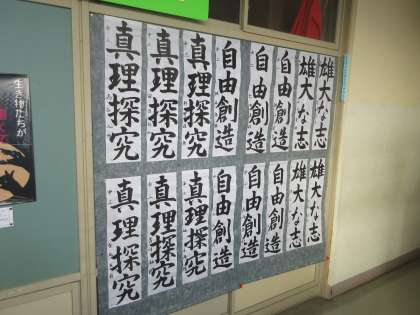 雄大な志
雄大な志
自由創造
自由創造
自由創造
真理探究
真理探究
真理探究
雄大な志
雄大な志
自由創造
自由創造
自由創造
真理探究
真理探究
真理探究
生き物たちが